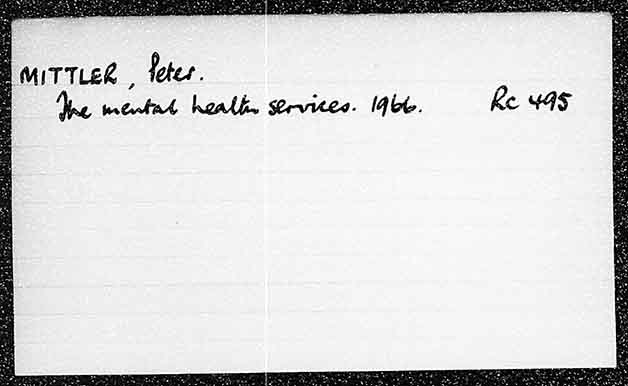 MITTLER, Peter.
The mental health services. 1966. RC 495